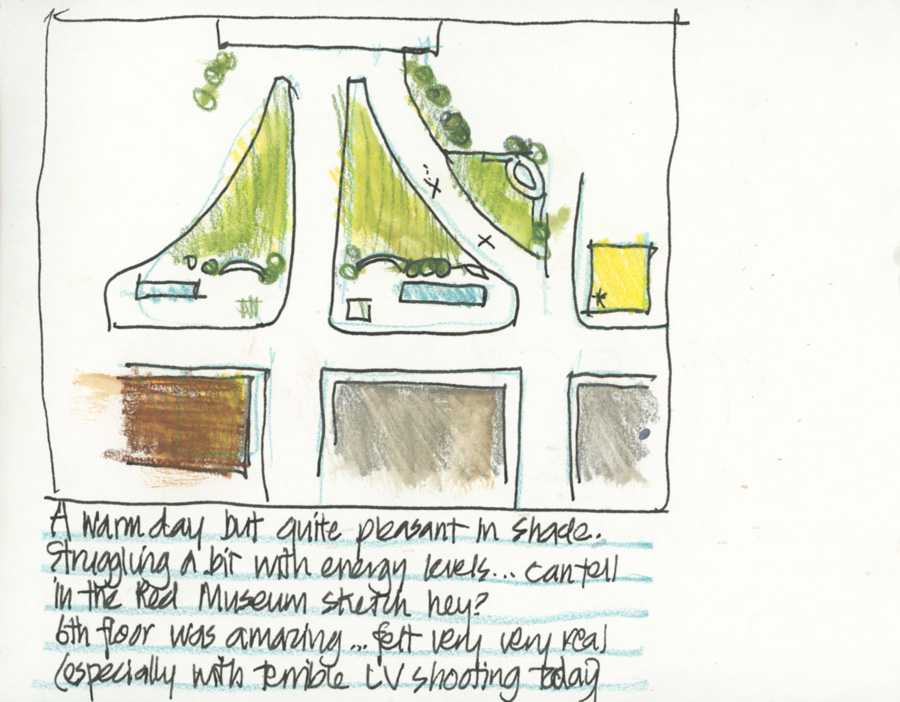 A warm day but quite pleasant in shade.
Struggling a bit with energy levels... can tell
in the Red Museum sketch hey?
6th floor was amazing... felt very very real
(especially with terrible LV shooting today)